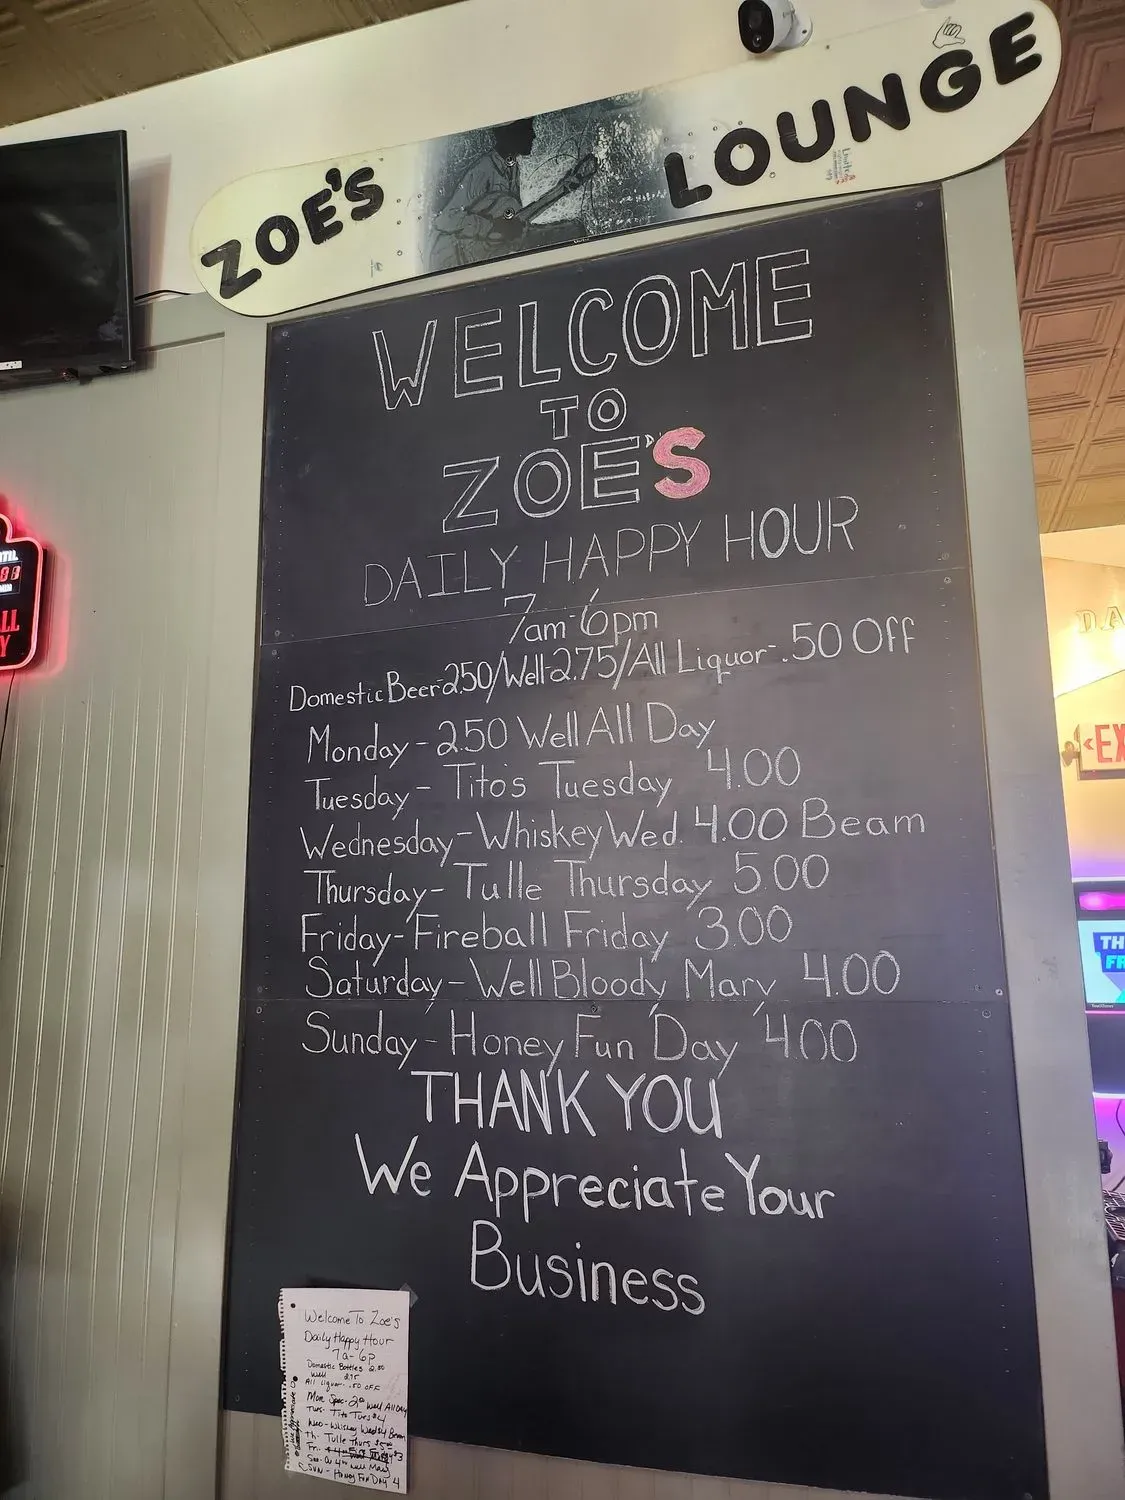 ZOE'S LOUNGE
WELCOME
TO
ZOE'S
DAILY HAPPY HOUR
7am-6pm
Domestic Beer-2.50/Well-2.75/All Liquor-.50 Off
Monday-2.50 Well All Day
Tuesday-Tito's Tuesday 4.00
Wednesday-Whiskey Wed. 4.00 Beam
Thursday-Tulle Thursday 5.00
Friday-Fireball Friday 3.00
Saturday-Well Bloody Mary 4.00
Sunday-Honey Fun Day 4.00
THANK YOU
We Appreciate Your
Business
Welcome To Zoe's
Daily Happy Hour
7a-6p
Domestic Bottles 2.50
Well 2.75
All Liquor .50 OFF
Mon Spec- Well All Day
Tues- Tito Tues $4
Wed-Whiskey Wedsy Beam
Th. Tulle Thurs $5
Fri. $3
Mary
SUN- Honey Fun DAY 4
EX
TH
FR